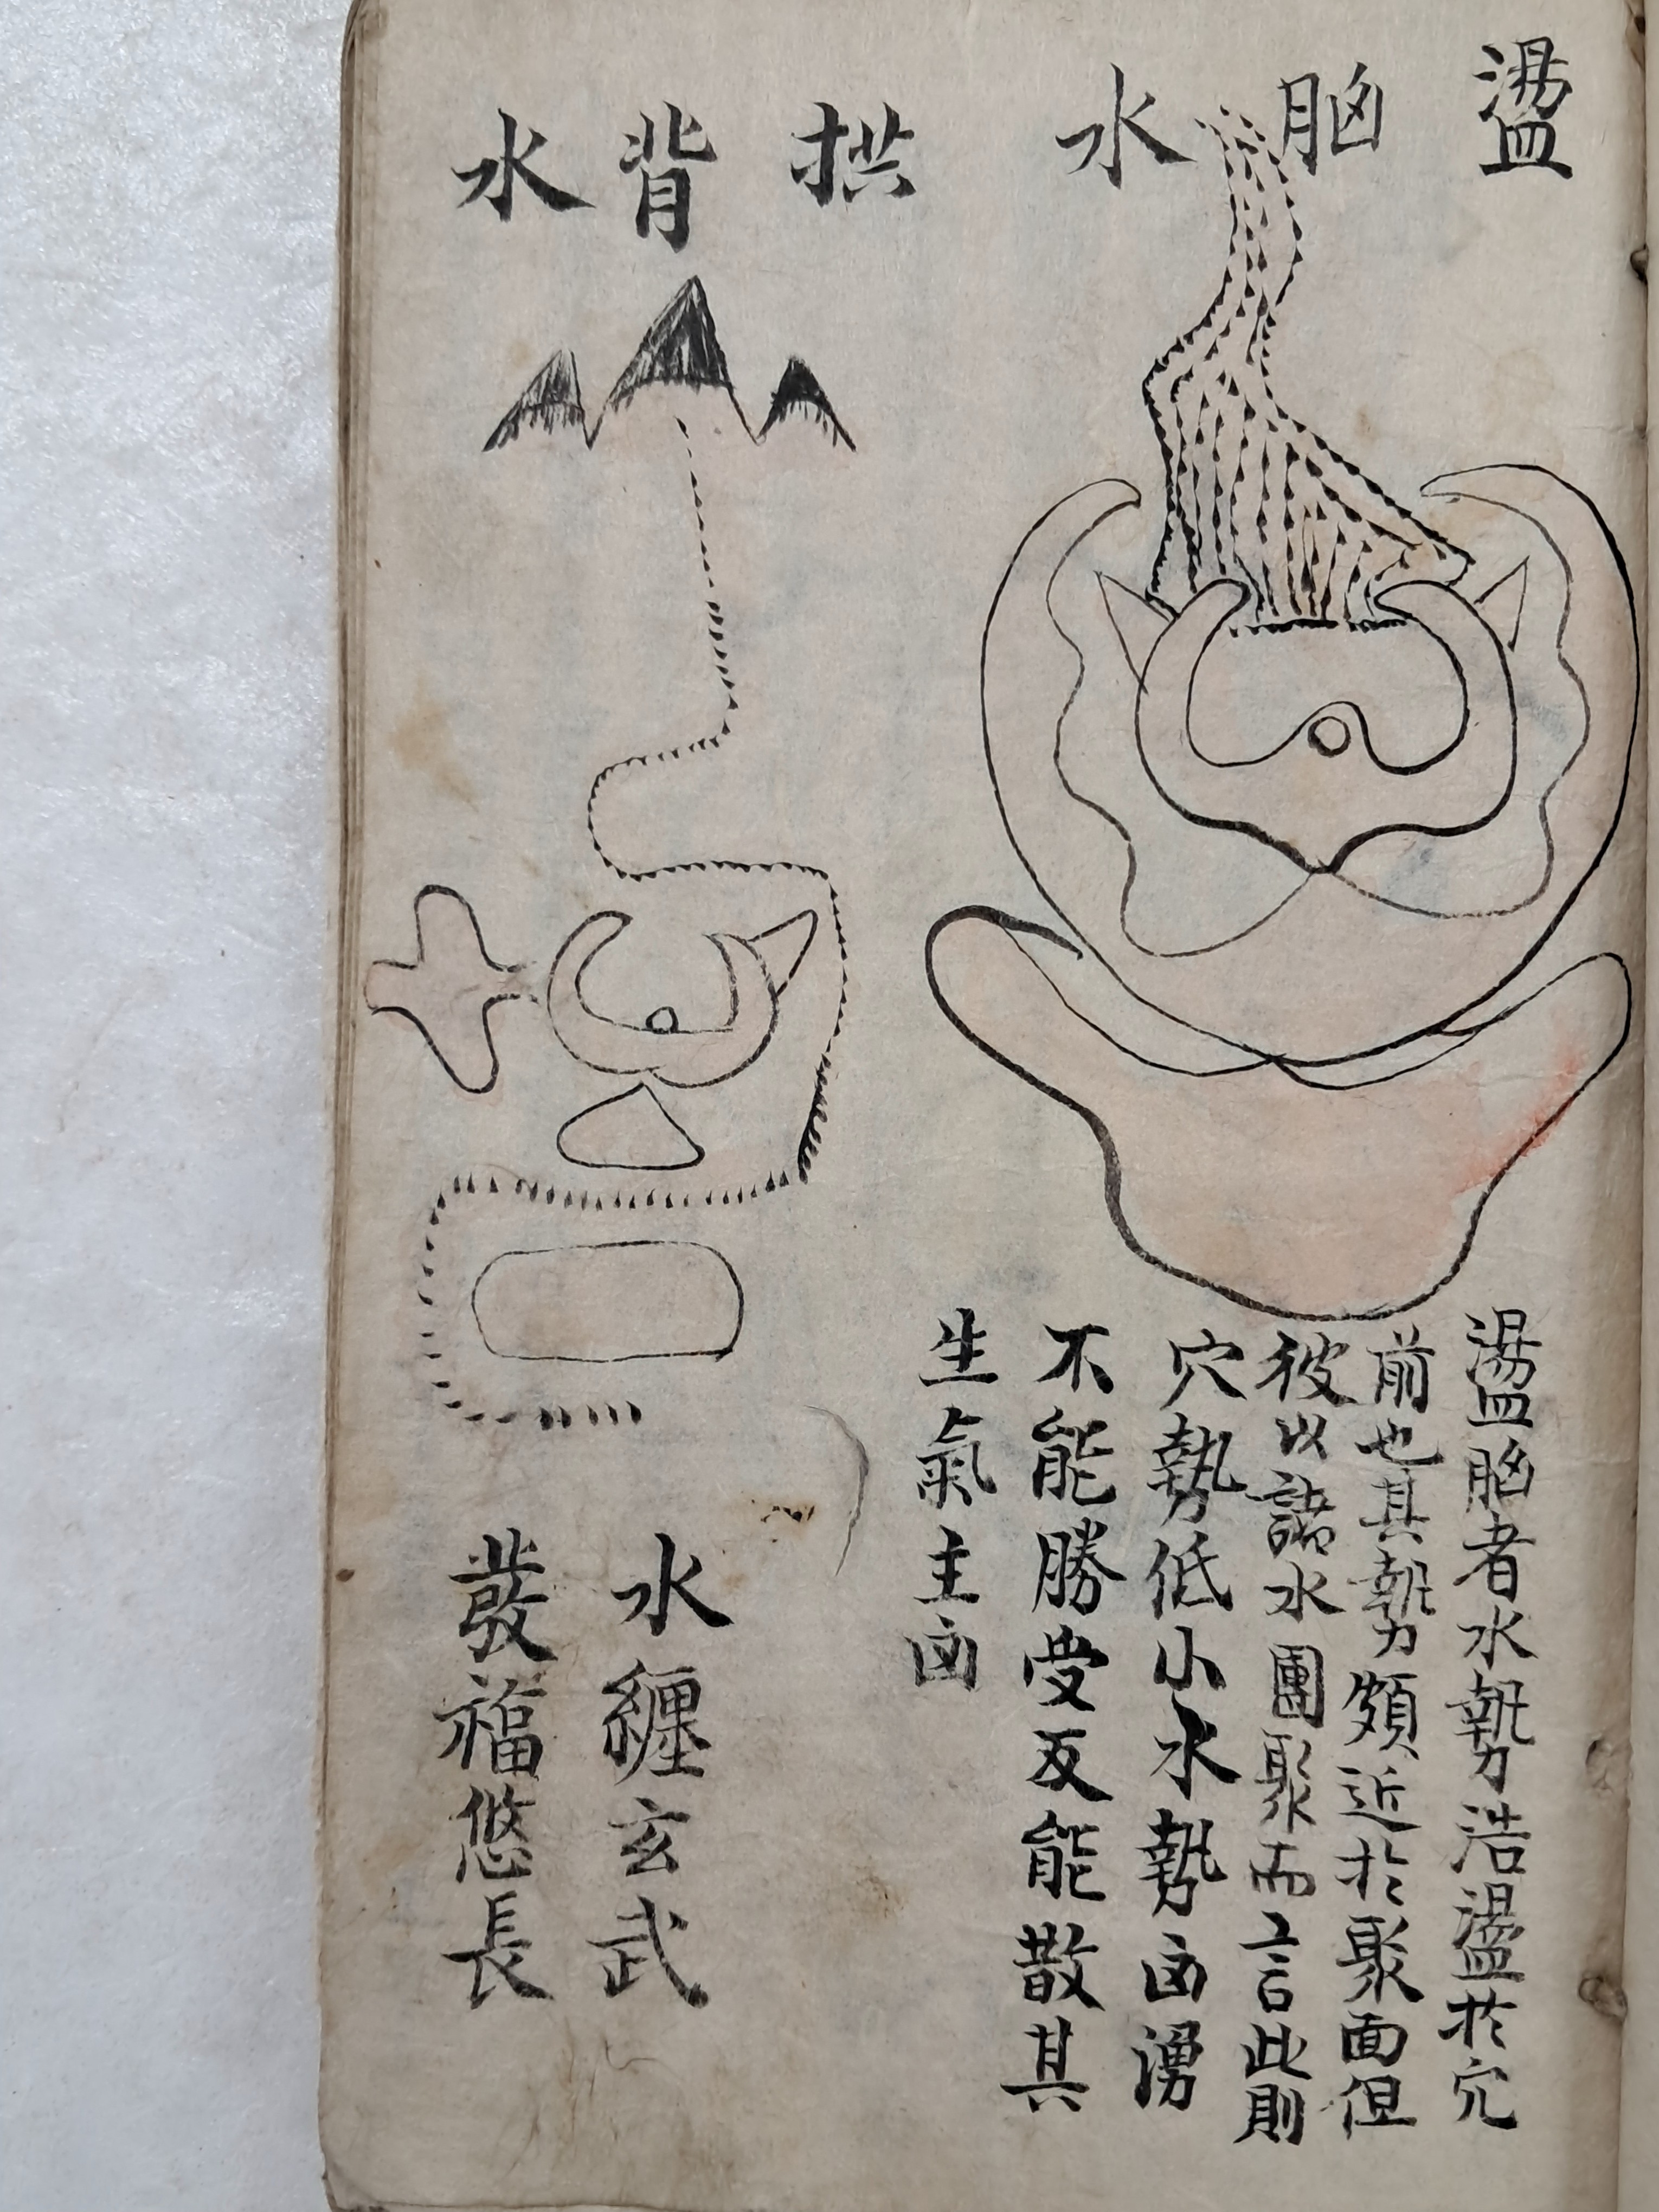 盪腦水
盪腦者水勢浩盪於穴
前也其勢頗近於聚面但
彼以諸水團聚而言此則
穴勢低小水勢凶湧
不能勝受反能散其
生氣主凶
拱背水
水纏玄武
發福悠長